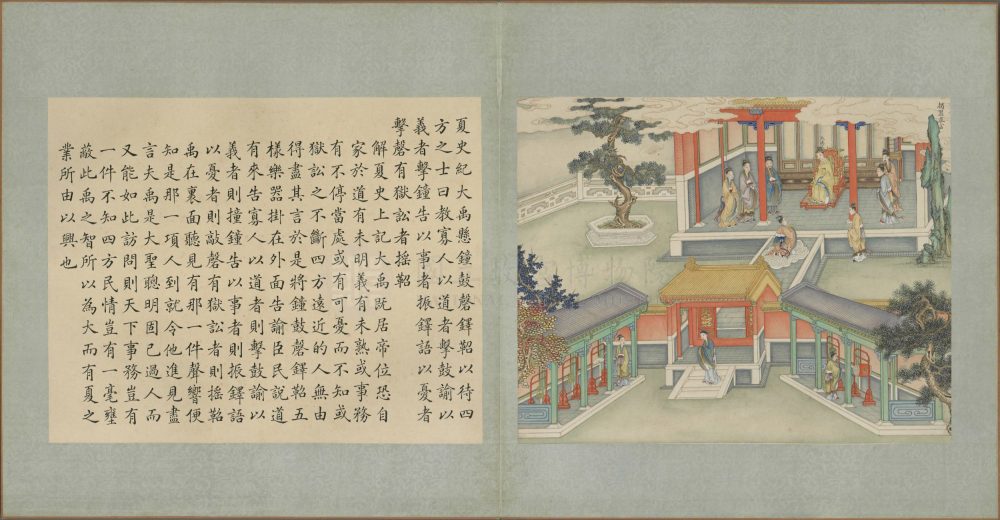 揭器求言
夏史紀大禹懸鐘鼓磬鐸鞀以待四
方之士曰教寡人以道者擊鼓諭以
義者擊鐘告以事者振鐸語以憂者
擊磬有獄訟者搖鞀
解夏史上記大禹既居帝位恐自
家於道有未明義有未熟或事務
有不停當處或有可憂而不知或
獄訟之不斷四方遠近的人無由
得盡其言於是將鐘鼓磬鐸鞀五
樣樂器掛在外面告諭臣民說道
有來告寡人以道者則擊鼓諭以
義者則撞鐘告以事者則振鐸語
以憂者則敲磬有獄訟者則搖鞀
禹在裏面聽見有那一件聲響便
知是那一項人到就令他進見盡
言夫禹是大聖聰明固已過人而
又能如此訪問則天下事務豈有
一件不知四方民情豈有一毫壅
蔽此禹之智所以為大而有夏之
業所由以興也